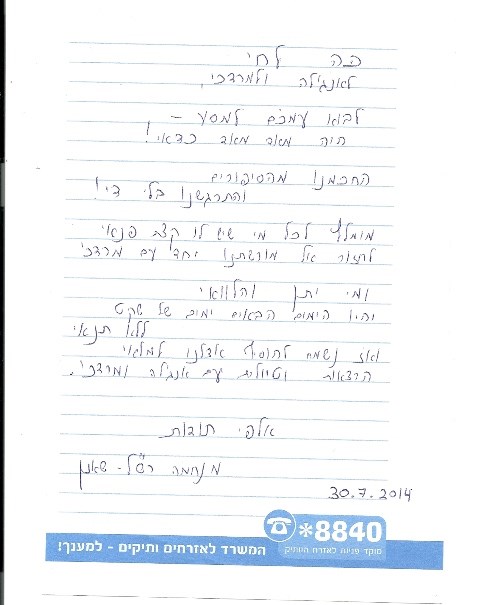 כה לחי
לאנג'לה ולמרדכי,
לבוא עמכם למסע –
היה מאוד מאוד כדאי!
החכמנו מהסיפורים
והתרגשנו בלי די!
מומלץ לכל מי שיש לו קצת פנאי
לחזור אל מורשתנו יחד עם מרדכי
ומי יתן והלוואי
והיו הימים הבאים ימים של שקט
ללא תנאי
ואז נשמח להוסיף אצלנו למלאי
הרצאות וטיולים עם אנג'לה ומרדכי.
אלפי תודות
מנחמה
30.7.2014
*8840
מוקד פניות לאזרח הוותיק
המשרד לאזרחים ותיקים - למענך!